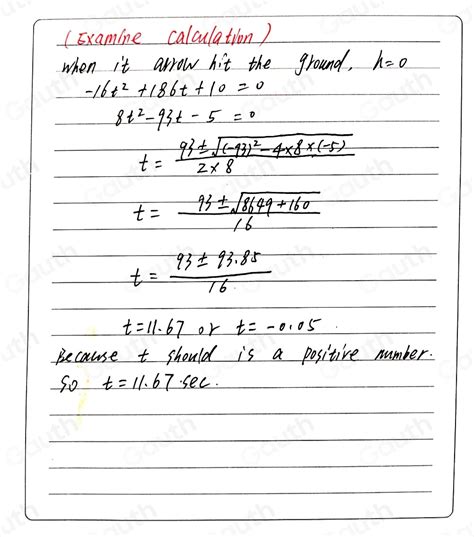 (Examine calculation)
when it arrow hit the ground, h=0
-16t² +186t+10=0
8t²-93t-5=0
t= 93±√(-93)²-4×8×(-5)
2×8
t= 93±√8649+160
16
t= 93±93.85
16
t=11.67 or t=-0.05.
Because t should is a positive number.
So t=11.67 sec.